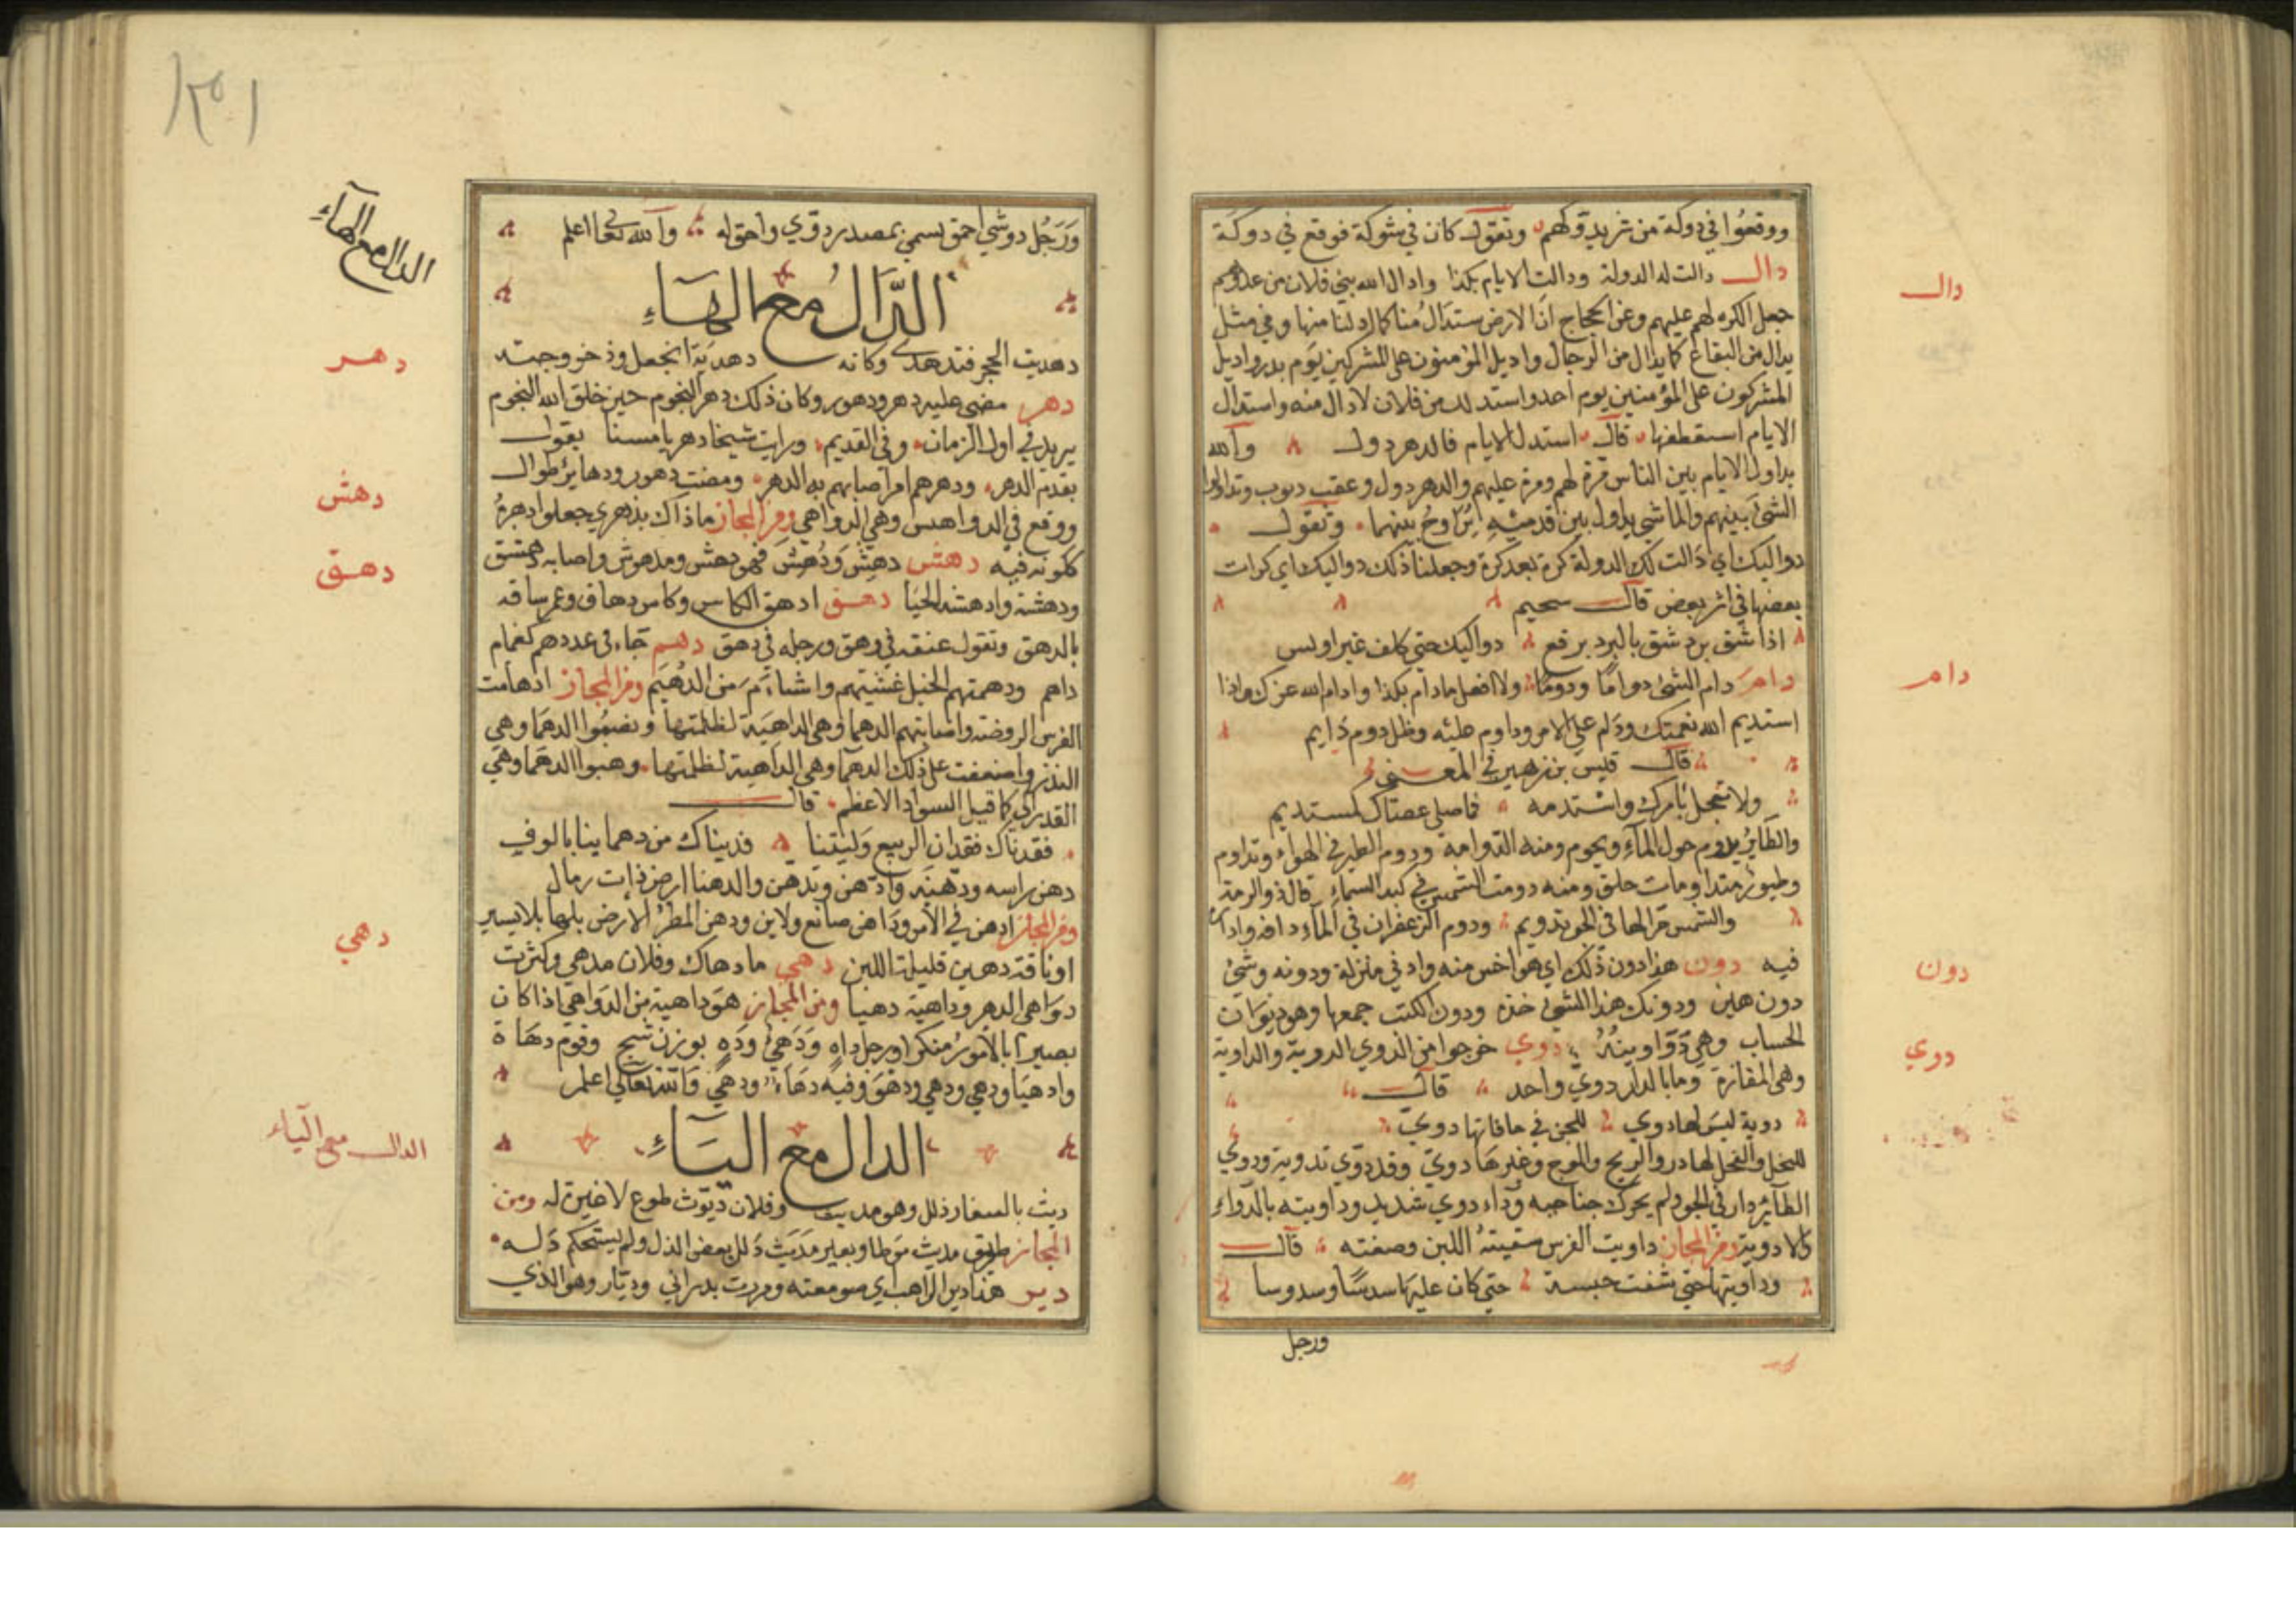 ووقعوا في دوكة من شر يدوكهم وتقول كان في شوكة فوقع في دوكة
دال دالت له الدولة ودالت الايام بكذا وادال الله بني فلان من عدوهم
جعل الكره لهم عليهم وعن الحجاج ان الارض ستدال منا كما ادلنا منها وفي مثل
يدال من البقاع كما يدال من الرجال واديل المؤمنون على المشركين يوم بدر واديل
المشركون على المؤمنين يوم احد واستدلت من فلان لادال منه واستدال
الايام استعطفها قال استدل الايام فالدهر دول والله
يداول الايام بين الناس مرة لهم ومرة عليهم والدهر دول وعقب ونوب وتداولوا
الشئ بينهم والماشي يداول بين قدميه يراوح بينهما وتقول
دواليك اي دالت لك الدولة كرة بعد كرة وجعلنا ذلك دواليك اي كرات
بعضها في اثر بعض قال سحيم
اذا شق برد شق بالبرد برقع دواليك حتى كلنا غير اوبس
دام دام الشئ دواما ودوما ولا افعل مادام بكذا وادام الله عزك واذا
استديم الله نعمتك ودام على الامر وداوم عليه وظل دوم دايم
قال قيس بن زهير في المعنى
ولا تعجل بامرك واستدمه فما صلى عصاك كمستديم
والطاير يدوم حول المآء ويحوم ومنه الدوامة ودوم الطير في الهواء وتداوم
وطيور متداومات حلق ومنه دومت الشمس في كبد السماء قال ذو الرمة
والشمس حرالها في الجو تدويم ودوم الزعفران في المآء دافه وادار
فيه دون هذا دون ذلك اي هو اخس منه وادنى منزلة ودونه وشئ
دون هين ودونك هذا الشئ خذه ودون الكتب جمعها وهو ديوان
الحساب وهي دواوينه دوي خرجوا من الدوي الدوية والداوية
وهي المفازة وما بالدار دوي واحد قال
دوية ليس لها دوي للجن في حافاتها دوي
للنحل والفحل لها در والريح والموج وغيرها دوي وقد دوى تدوية ودوي
الطاير دار في الجو ولم يحرك جناحيه وداء دوي شديد وداويته بالدواء
كالادوية ومن المجاز داويت الفرس سقيته اللبن وصنعته قال
وداويتها حتى شفت حبسة حتى كان عليها سندسا وسدوسا
ورجل
دال
دام
دون
دوي
ورجل دوشي احمق يسمى بمصدر دوي واحق له والله تعالى اعلم
الدال مع الهاء
دهديت الحجر فتدهدى وكانه دهدية الجعل وذخروجته
دهر مضى عليه دهر ودهور وكان ذلك دهر النجوم حين خلق الله النجوم
يريد في اول الزمان وفي القديم ورايت شيخا دهريا مسنا يقول
بقديم الدهر ودهرهم امر اصابهم به الدهر ومضت دهور ودهارير طوال
ووقع في الدواهس وهي الدواهي ومن المجاز ما ذاك بدهري جعلوا دهره
كلونه فيه دهش دهش ودهش فهو دهش ومدهوش واصابه دهشق
ودهشة وادهشه الحيا دهق ادهق الكاس وكاس دهاق وغمر ساقه
بالدهق وتقول عنقه في وهق ورجله في دهق دهم جاء في عدد دهم كغمام
داهم ودهمتهم الخيل غشيتهم واشأم من الدهيم ومن المجاز ادهامت
الفرس الروضة واصابتهم الدهما وهي الداهية لظلمتها ونصبوا الدهما وهي
القدر كما قيل السواد الاعظم قال
فقدناك فقدان الربيع وليتنا فديناك من دهماينا بالوف
دهن راسه ودهنه وادهن وتدهن والدهنا ارض ذات رمال
ومن المجاز ادهن في الامر وداهن صانع ولاين ودهن المطر الارض بلها بلا يسير
اوناقة دهين قليلة اللبن دهي ما دهاك وفلان مدهي وكثرت
دواهي الدهر وداهية دهيا ومن المجاز هو داهية من الدواهي اذا كان
بصيرا بالامور منكرا ورجل داه ودهي وده بوزن شج وقوم دهاة
وادهيا ودهي ودهي ودهو وفيه دهاء ودهي والله تعالى اعلم
الدال مع الياء
ديث بالصغار ذلل وهو مديث وفلان ديوث طموع لا خير له ومن
المجاز طريق مديث موطا وبعير مديث ذلل بعض الذل ولم يستحكم ذله
دير هذا دير الراهب اي صومعته ومررت بديراني وديار وهو الذي
الدال مع الهاء
دهر
دهش
دهق
دهي
الدال مع الياء